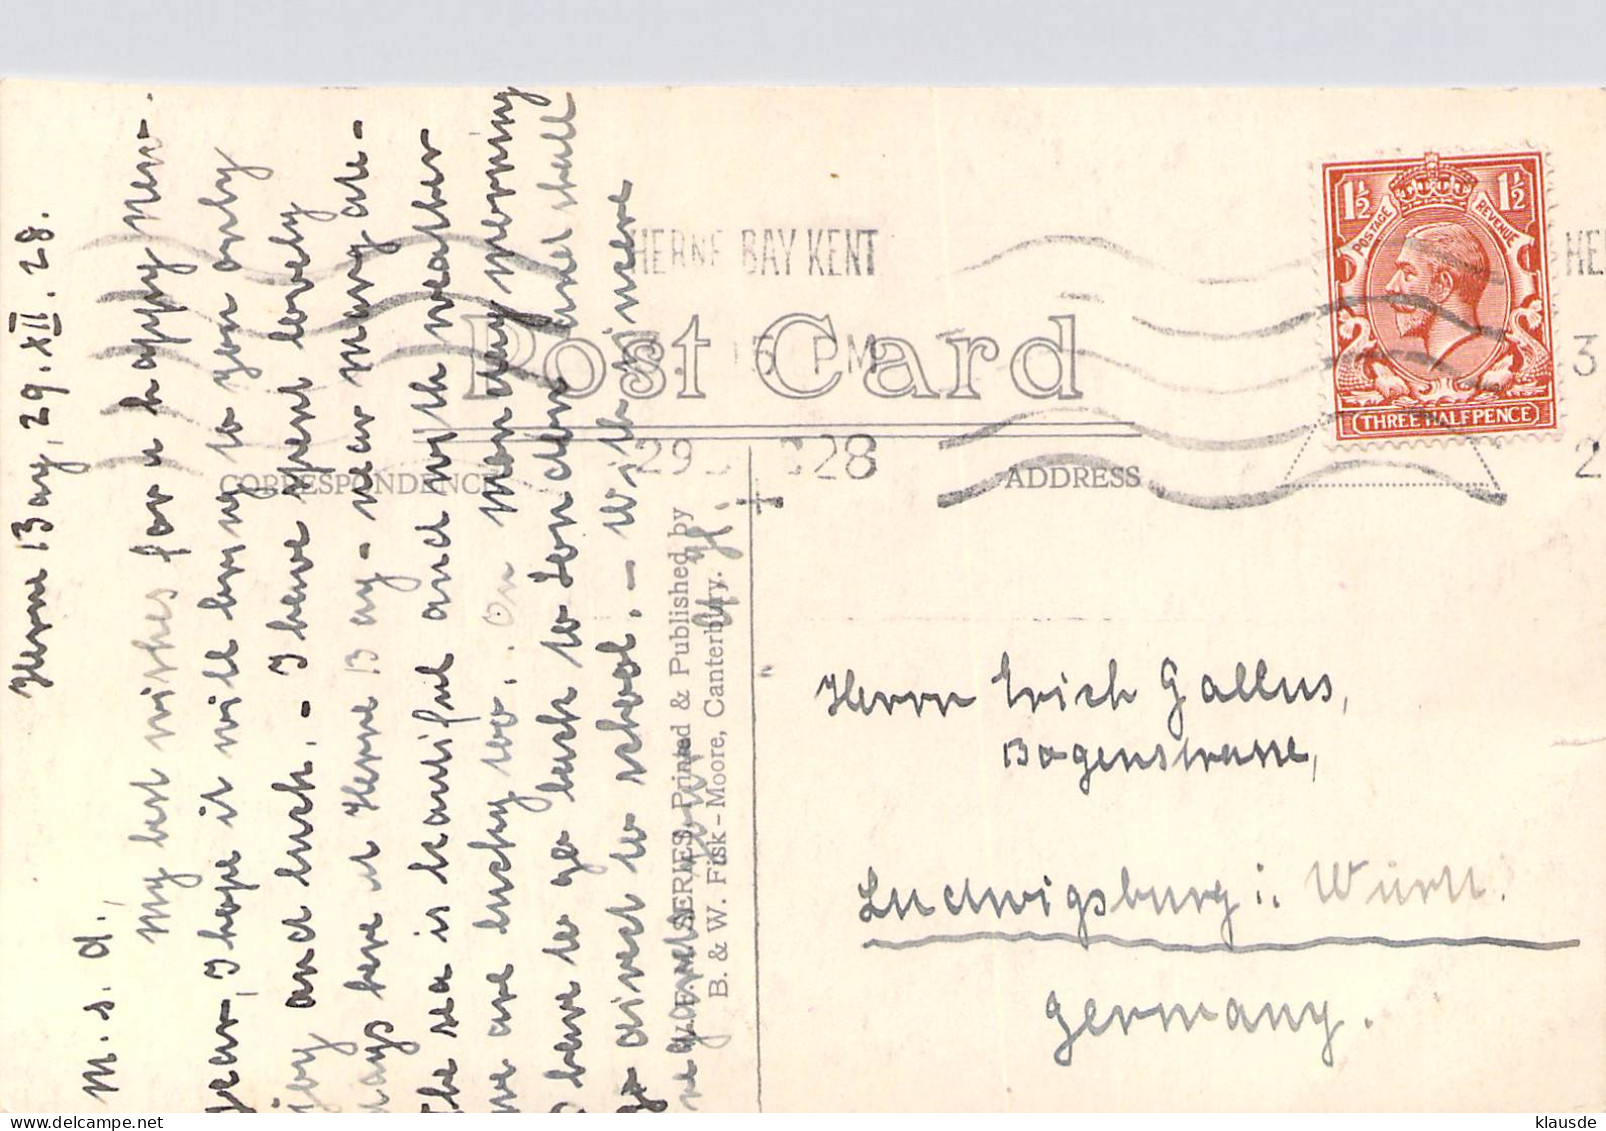 Herne Bay, 29. XII. 28.
M. s. d.,
My best wishes for a happy New-
year, I hope it will bring to you only
joy and luck. - I have spent lovely
days here at Herne Bay - near Margate -
The sea is beautiful and with weather
we are lucky too. On monday morning
I have to go back to London and shall
go direct to school. - With sincere
regards
yours
Post Card
CORRESPONDENCE
ADDRESS
HERNE BAY KENT
5 PM
29 28
SERIES. Printed & Published by
B. & W. Fisk-Moore, Canterbury.
1½ 1½
POSTAGE REVENUE
THREE HALFPENCE
HE
3
2
Herrn Erich Gallus,
Bogenstrasse,
Ludwigsburg i. Württ.
Germany.
klausde